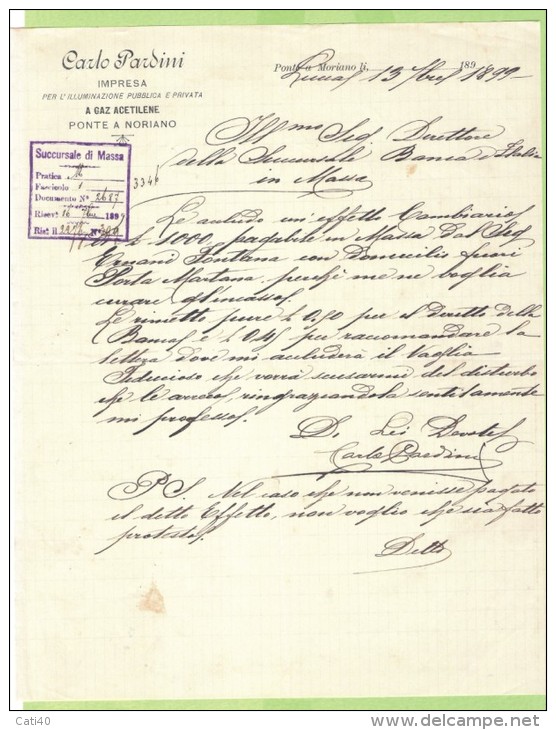 Carlo Pardini
IMPRESA
PER L'ILLUMINAZIONE PUBBLICA E PRIVATA
A GAZ ACETILENE
PONTE A NORIANO
Ponte a Moriano li, 189
Lucca 13 1899
Succursale di Massa
Pratica
Fascicolo 1
Documento Nº 2687
Riserv. 16 1899
Risc. il Nº
334
Ill mo Sig Direttore
della Succursale Banca d'Italia
in Massa
Le accludo un'effetto Cambiario
di £ 1000, pagabile in Massa dal Sig
Ernani Fontana con Domicilio fuori
Porta Martana, perchè me ne voglia
curare gl'incasso.
Le rimetto pure £ 0,50 per il Diretto della
Banca e £ 0,45 per raccomandare la
lettera dove mi accluderà il Vaglia
Fiducioso che vorrà scusarmi del disturbo
che le arreco, ringraziandola sentitamente
mi professo.
D. Lei Devoto
Carlo Pardini
P.S. Nel caso che non venisse pagato
il detto Effetto, non voglio che sia fatto
protesto.
Detto
Cati40
www.delcampe.net